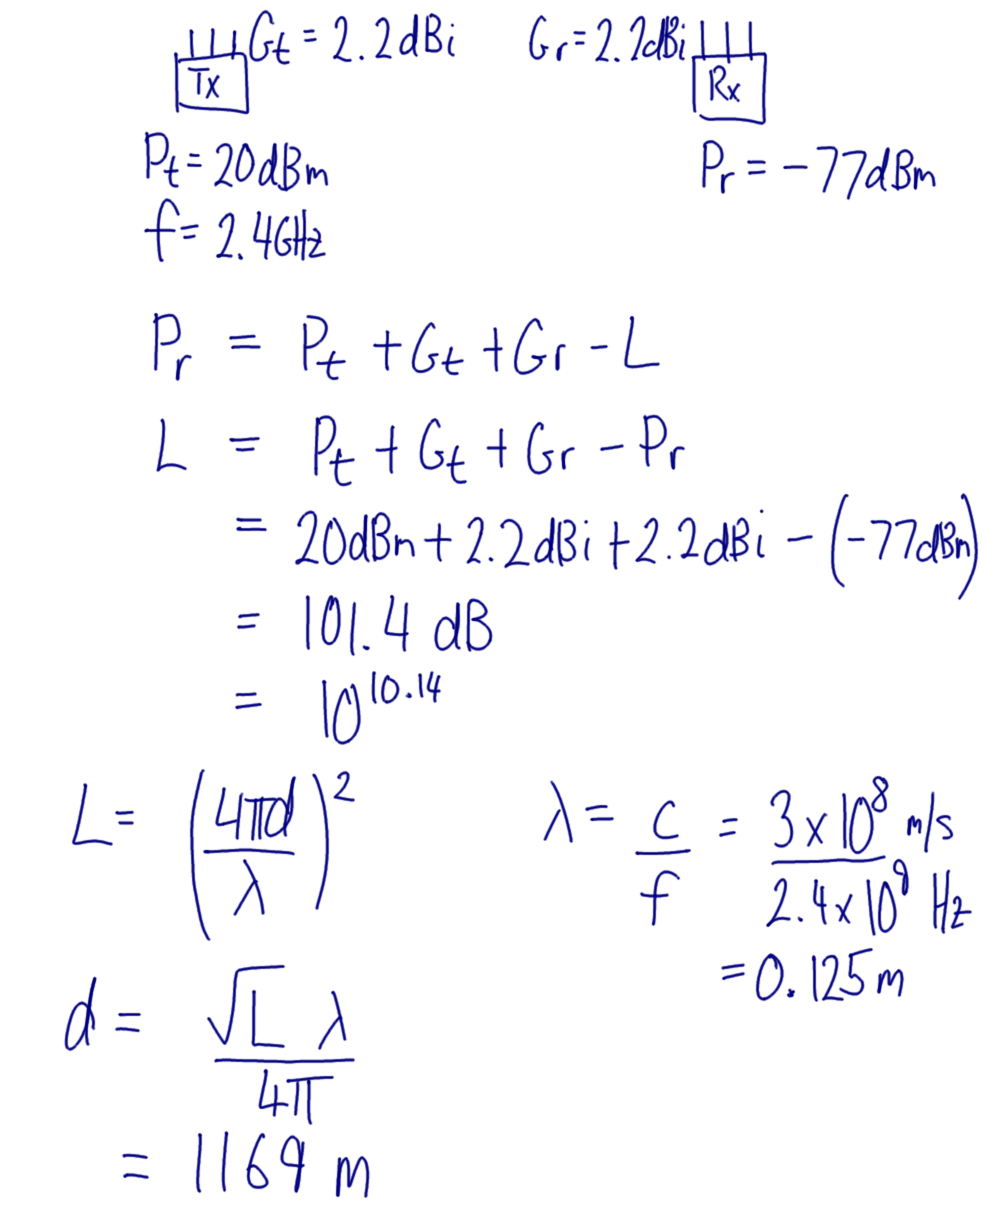 Gt = 2.2dBi Gr=2.2dBi
Tx Rx
Pt = 20dBm Pr = -77dBm
f = 2.4GHz
Pr = Pt + Gt + Gr - L
L = Pt + Gt + Gr - Pr
= 20dBm + 2.2dBi + 2.2dBi - (-77dBm)
= 101.4 dB
= 10^10.14
L = (4πd/λ)² λ = c/f = 3x10⁸ m/s / 2.4x10⁹ Hz
= 0.125m
d = √L λ / 4π
= 1169 m